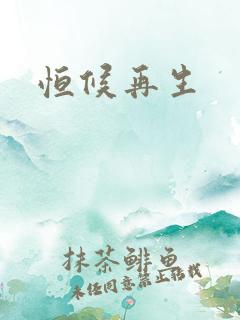 恒候再生
抹茶鲱鱼
未经同意禁止转载